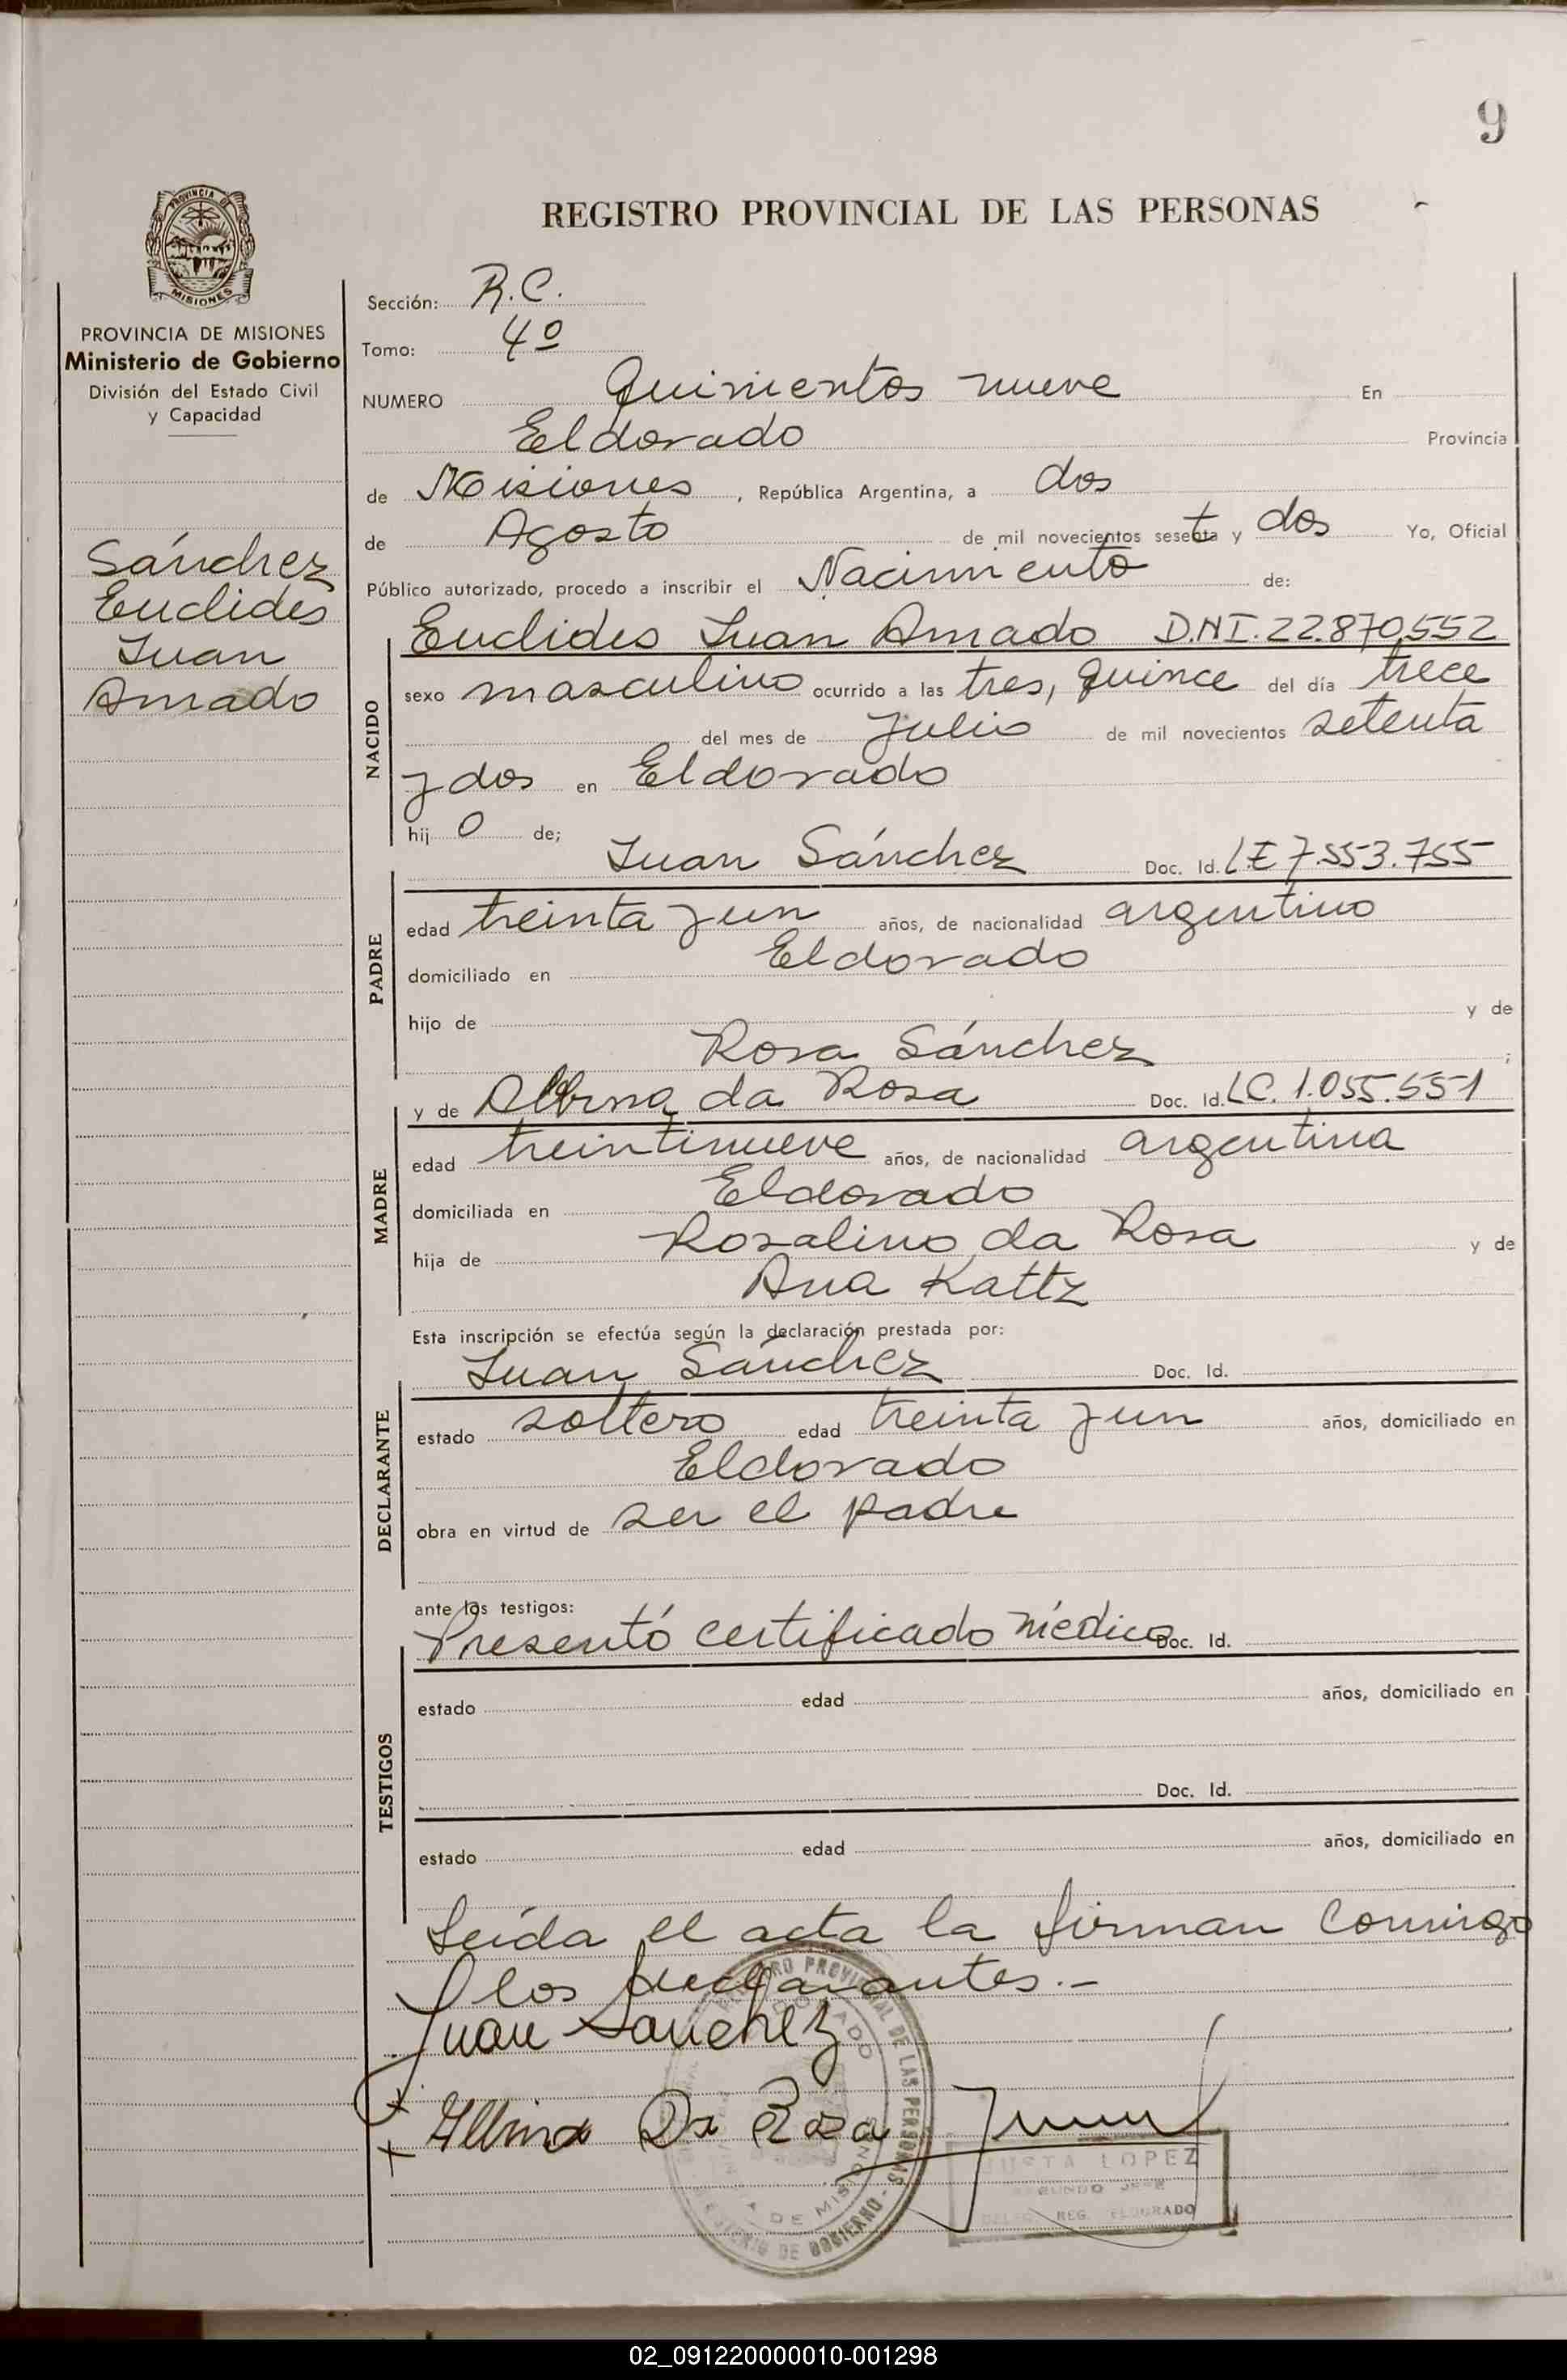 9
REGISTRO PROVINCIAL DE LAS PERSONAS
PROVINCIA DE
MISIONES
PROVINCIA DE MISIONES
Ministerio de Gobierno
División del Estado Civil
y Capacidad
Sánchez
Euclides
Juan
Amado
Sección: R.C.
Tomo: 4º
NUMERO Quinientos nueve En
Eldorado Provincia
de Misiones, República Argentina, a dos
de Agosto de mil novecientos sesenta y dos Yo, Oficial
Público autorizado, procedo a inscribir el Nacimiento de:
NACIDO
Euclides Juan Amado D.N.I. 22.870.552
sexo masculino ocurrido a las tres, quince del día trece
del mes de Julio de mil novecientos setenta
y dos en Eldorado
hijo de;
PADRE
Juan Sánchez Doc. Id. LE 7.553.755
edad treinta y un años, de nacionalidad argentino
domiciliado en Eldorado
hijo de y de
Rosa Sánchez ;
MADRE
y de Albina da Rosa Doc. Id. LC. 1.055.551
edad treintinueve años, de nacionalidad argentina
domiciliada en Eldorado
hija de Rosalino da Rosa y de
Ana Kattz
Esta inscripción se efectúa según la declaración prestada por:
DECLARANTE
Juan Sánchez Doc. Id.
estado soltero edad treinta y un años, domiciliado en
Eldorado
obra en virtud de ser el padre
ante los testigos:
TESTIGOS
Presentó certificado médico Doc. Id.
estado edad años, domiciliado en
Doc. Id.
estado edad años, domiciliado en
Leída el acta la firman conmigo
los declarantes.-
Juan Sanchez
Albina Da Rosa
REGISTRO PROVINCIAL DE LAS PERSONAS - MINISTERIO DE GOBIERNO
ELDORADO
DE MISIONES
JUSTA LOPEZ
SEGUNDO JEFE
REG. ELDORADO
02_091220000010-001298